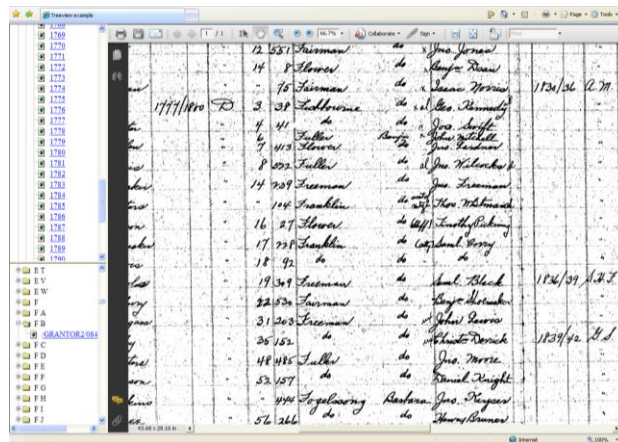 Treeview example
Page
Tools
1 / 1
66.7%
Collaborate
Sign
Find
1768
1769
1770
1771
1772
1773
1774
1775
1776
1777
1778
1779
1780
1781
1782
1783
1784
1785
1786
1787
1788
1789
1790
E T
E V
E W
F
F A
F B
/GRANTOR2/084
F C
F D
F E
F F
F G
F H
F I
F J
12 551 Fairman do Jno. Jones
14 8 Flower do Benj. Dean
" 75 Fairman do Isaac Norris 1830/36 A.M.
1777/1800 D 3 38 do Geo. Kennedy
4 41 do do Jos. Swift
6 Fuller John Mitchell
7 413 Flower do Jno.
8 522 Fuller do Jno. Wilcocks
14 239 Freeman do Jno. Freeman
" 104 Franklin do Thos.
16 27 Flower do Timothy Pickering
17 228 Franklin do Saml.
18 92 do do do
19 309 Freeman do Saml. Black 1836/39 S.H.F.
22 530 Fairman do Benj. Shoemaker
31 203 Freeman do John Lewis
35 152 do do Derick 1839/42 G.S.
48 485 Fuller do Jno. Moore
52 157 do do Daniel Knight
" 444 Fogelsong Barbara Jno. Keyser
56 266 do do Henry Bruner
Internet
100%